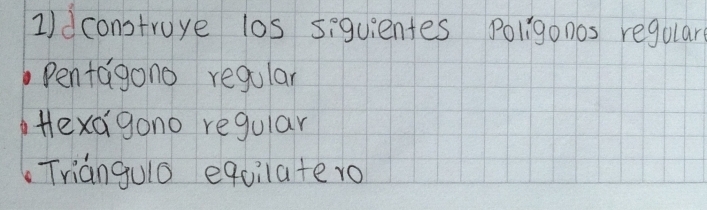 2) construye los siguientes Polígonos regulare
• Pentágono regular
• Hexágono regular
• Triángulo equilatero